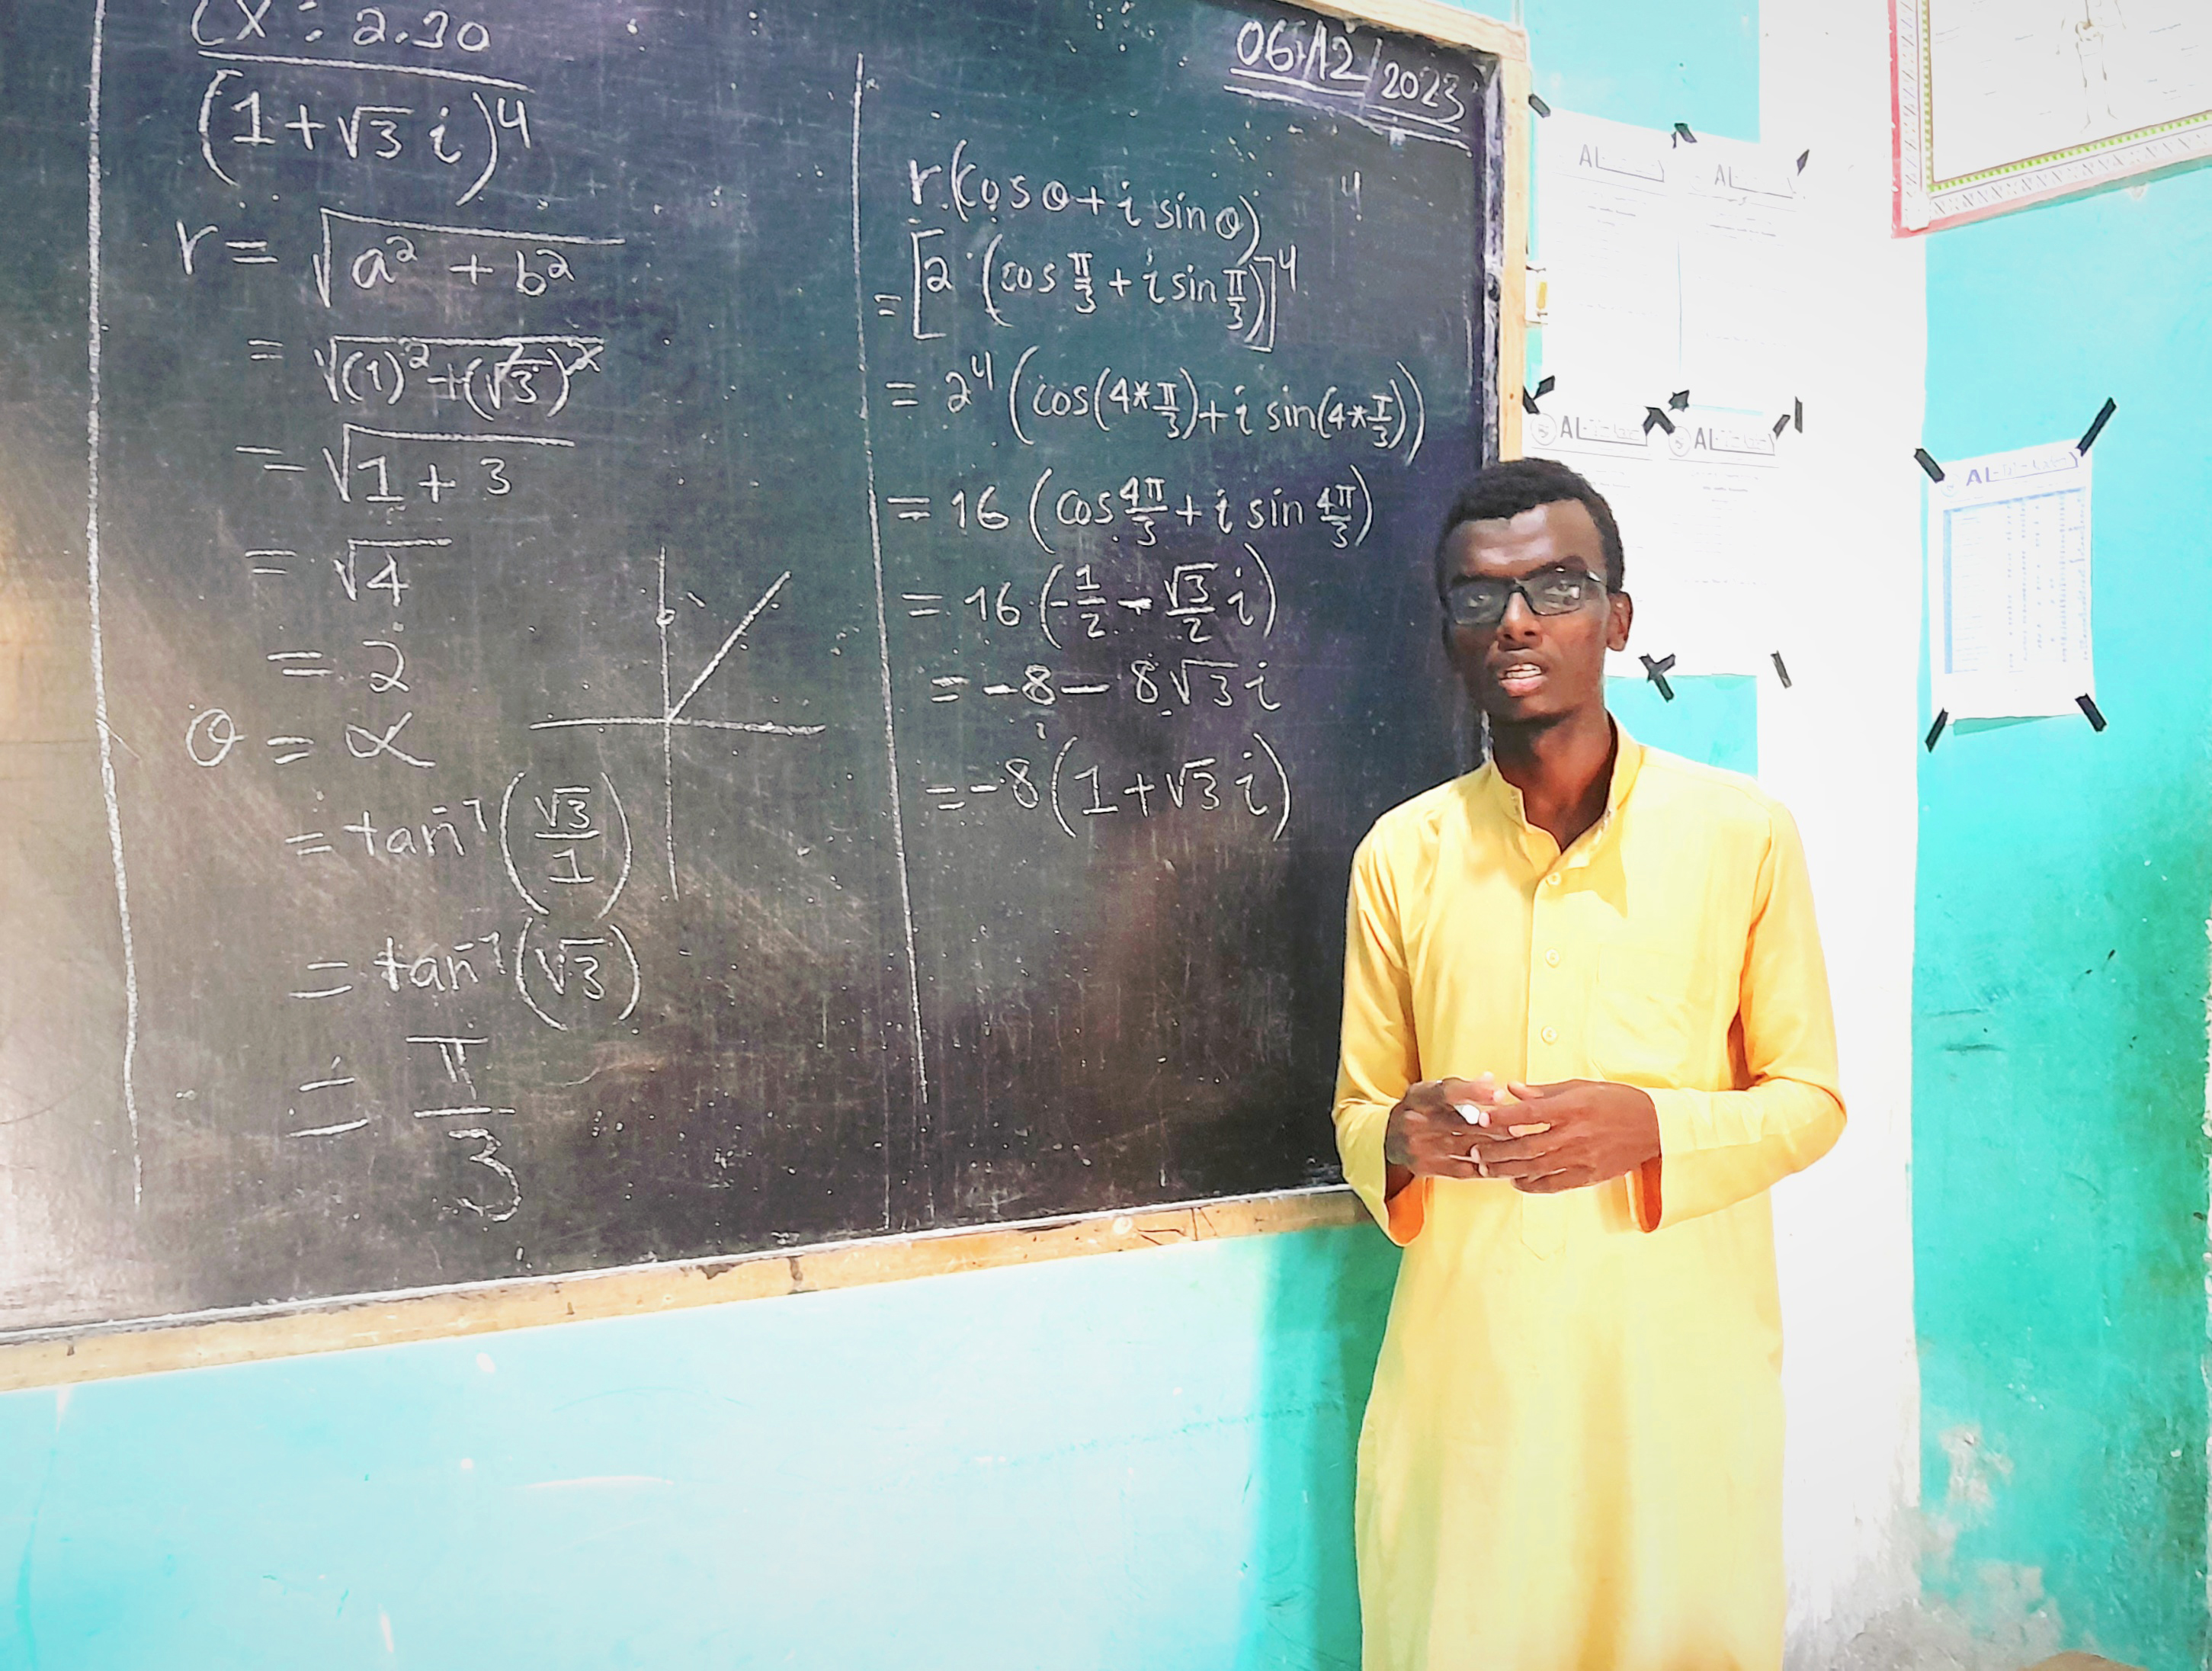 Ex: 2.30
(1+√3 i)⁴
r = √a² + b²
= √(1)²+(√3)²
= √1 + 3
= √4
= 2
θ = α
= tan⁻¹(√3/1)
= tan⁻¹(√3)
= π/3
06/12/2023
r(cosθ+i sinθ)⁴
=[2 (cos π/3 + i sin π/3)]⁴
= 2⁴ (cos(4*π/3)+i sin(4*π/3))
= 16 (cos 4π/3 + i sin 4π/3)
= 16 (-1/2 - √3/2 i)
= -8 - 8√3 i
= -8(1+√3 i)
AL
AL
AL
AL
AL